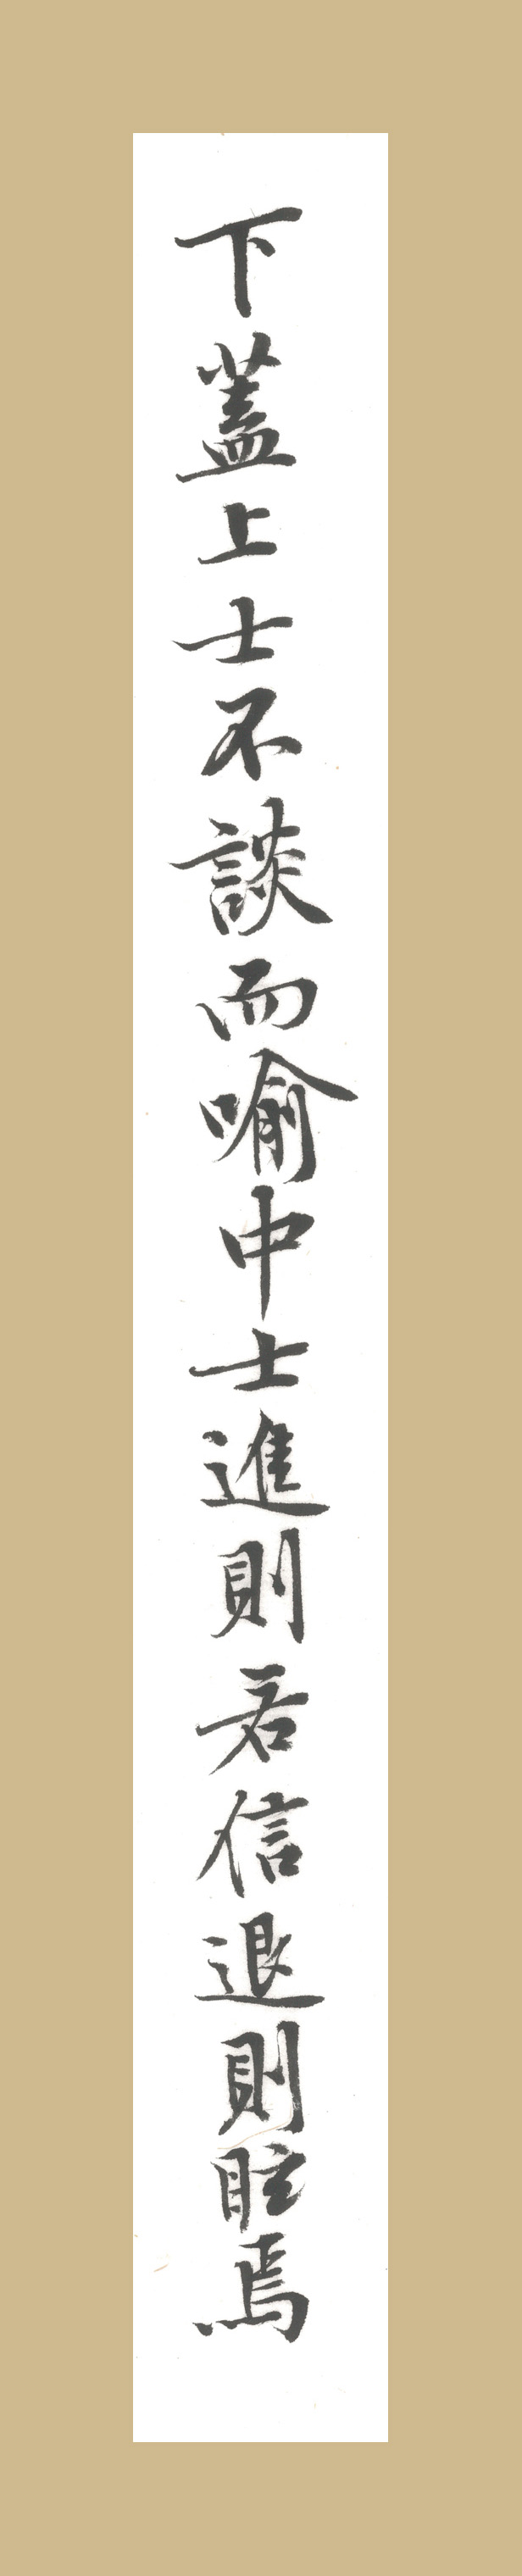 下蓋上士不談而喻中士進則若信退則眩焉